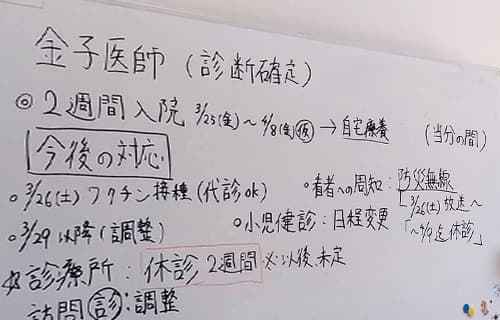 金子医師(診断確定)
◎2週間入院 3/25(金)~4/8(金)仮→自宅療養 (当分の間)
今後の対応
○3/26(土)ワクチン接種(代診ok)
○3/29以降(調整)
○患者への周知:防災無線
3/26(土)放送~
「~4/9迄休診」
○小児健診:日程変更
診療所:休診2週間 ※以後、未定
訪問診:調整